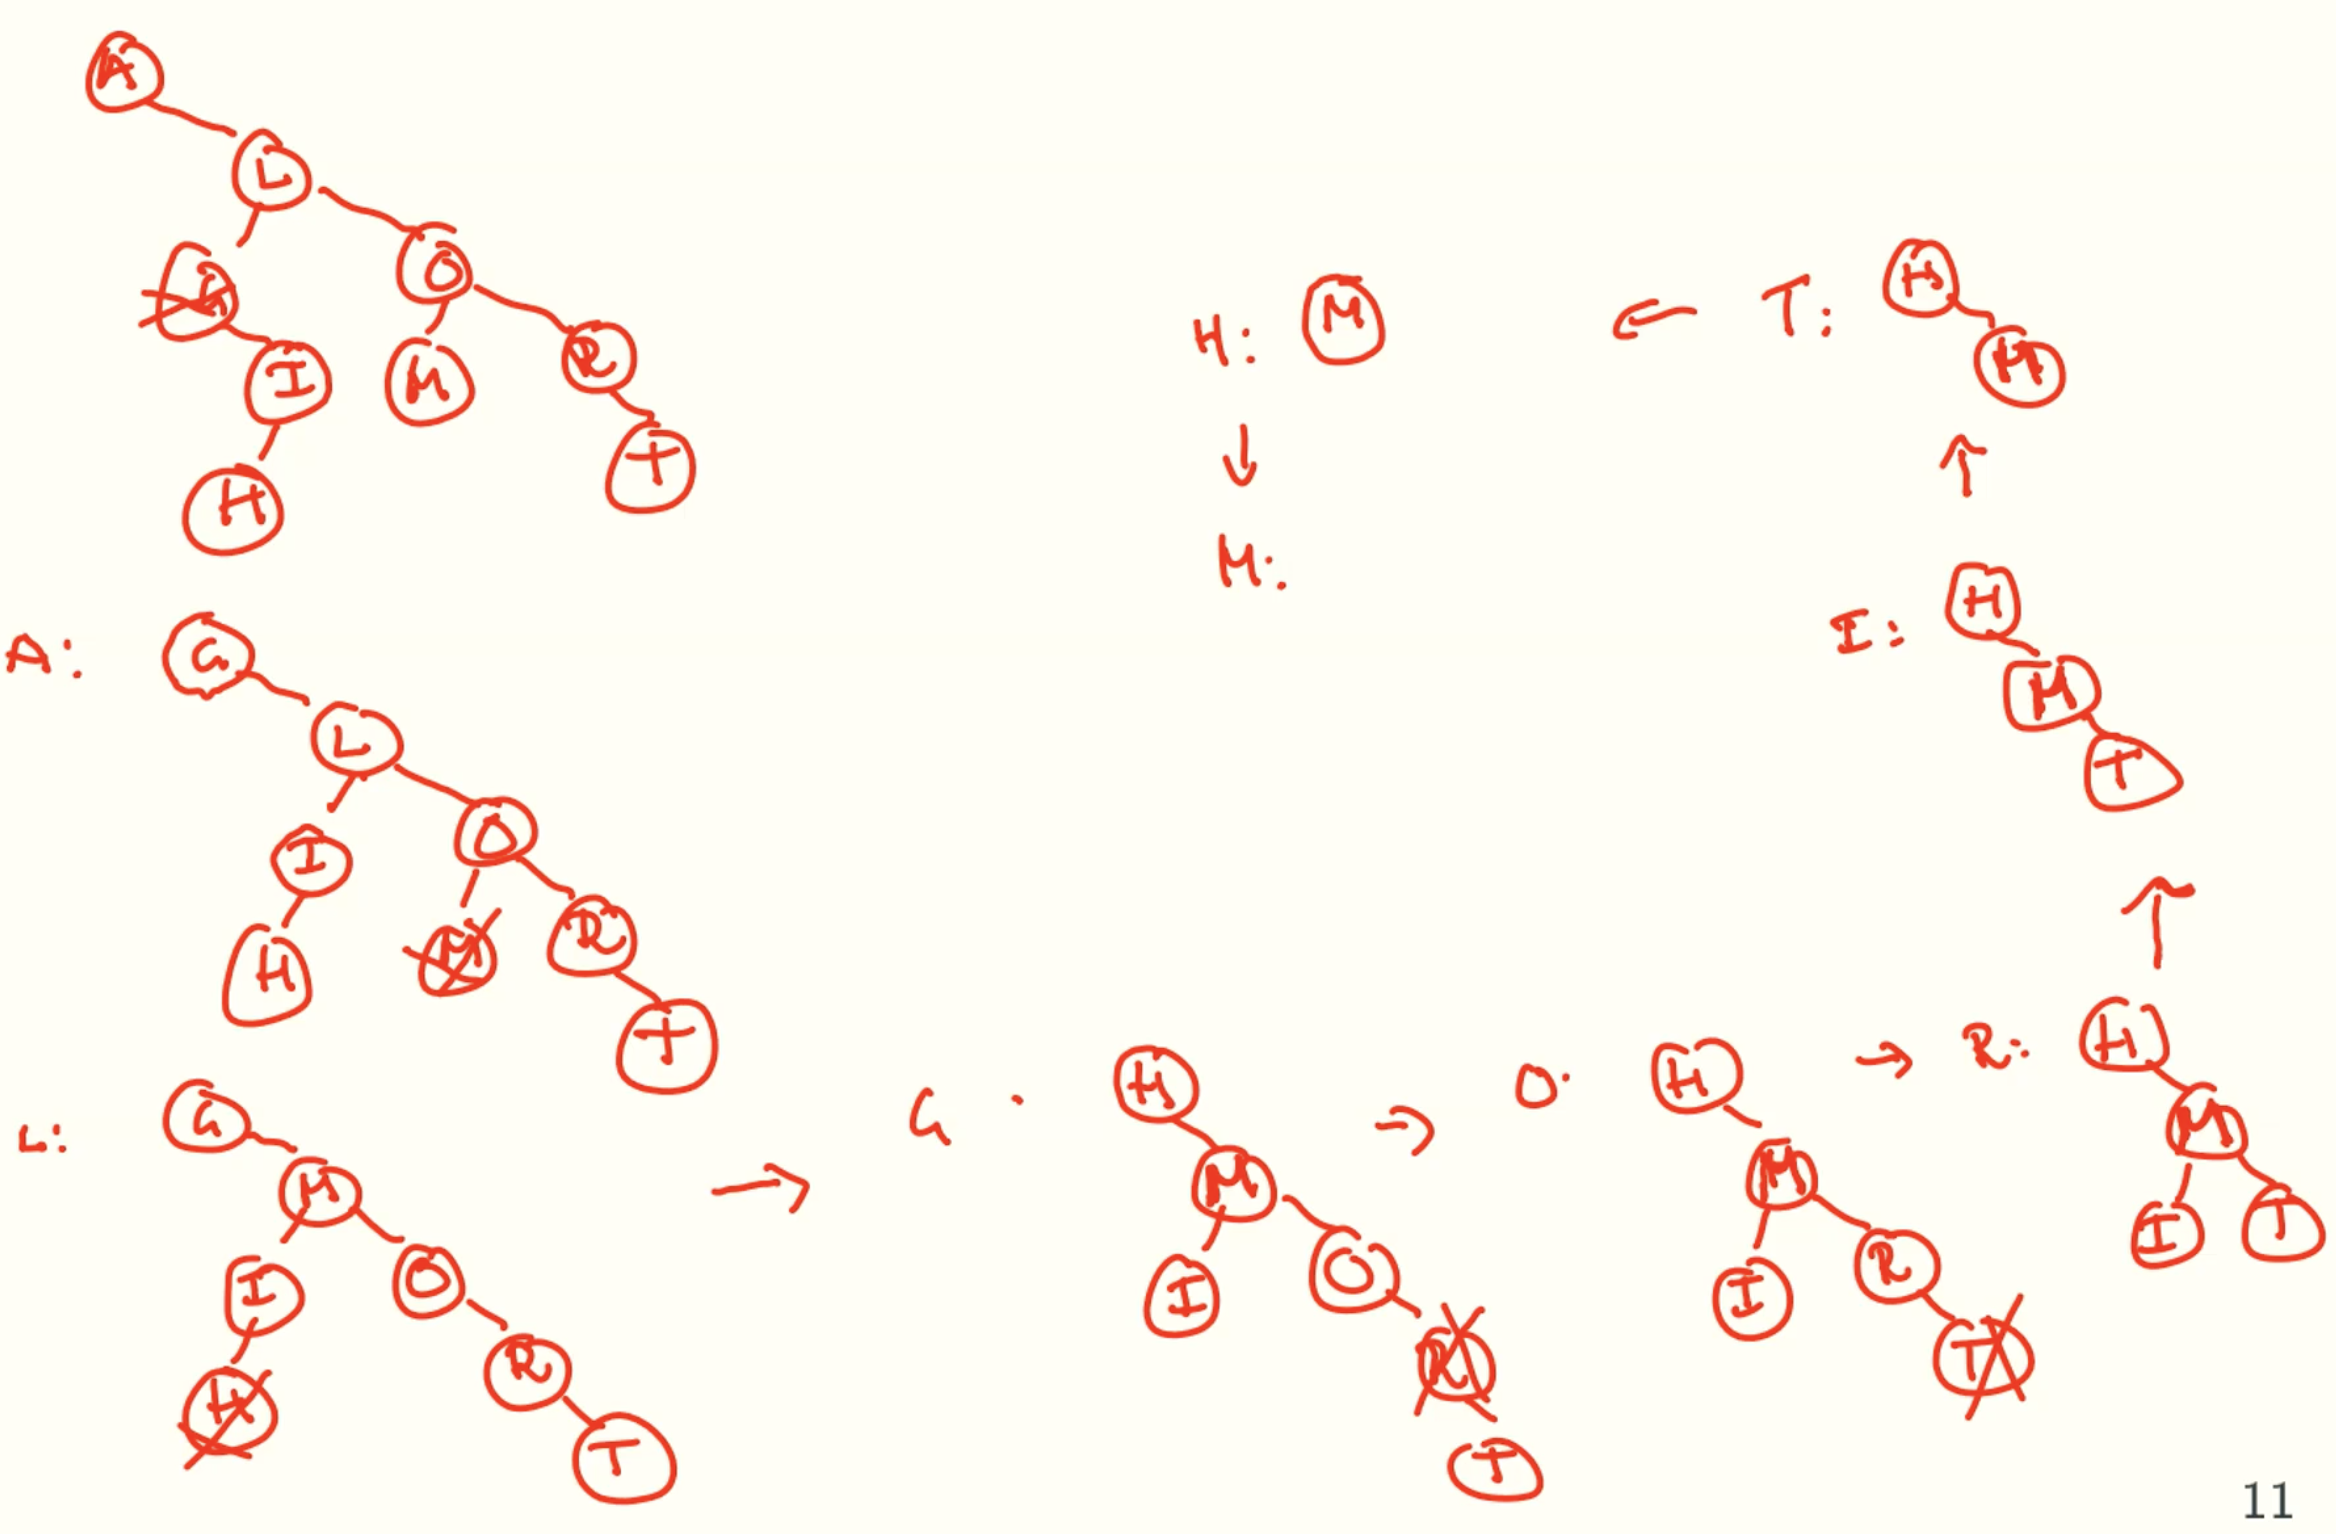 A
L
G
O
I
M
R
H
T
A:
G
L
I
O
H
M
R
T
L:
G
M
I
O
H
R
T
G :
H
M
I
O
R
T
O:
H
M
I
R
T
R:
H
M
I
T
I:
H
M
T
T:
H
M
H:
M
M:
11